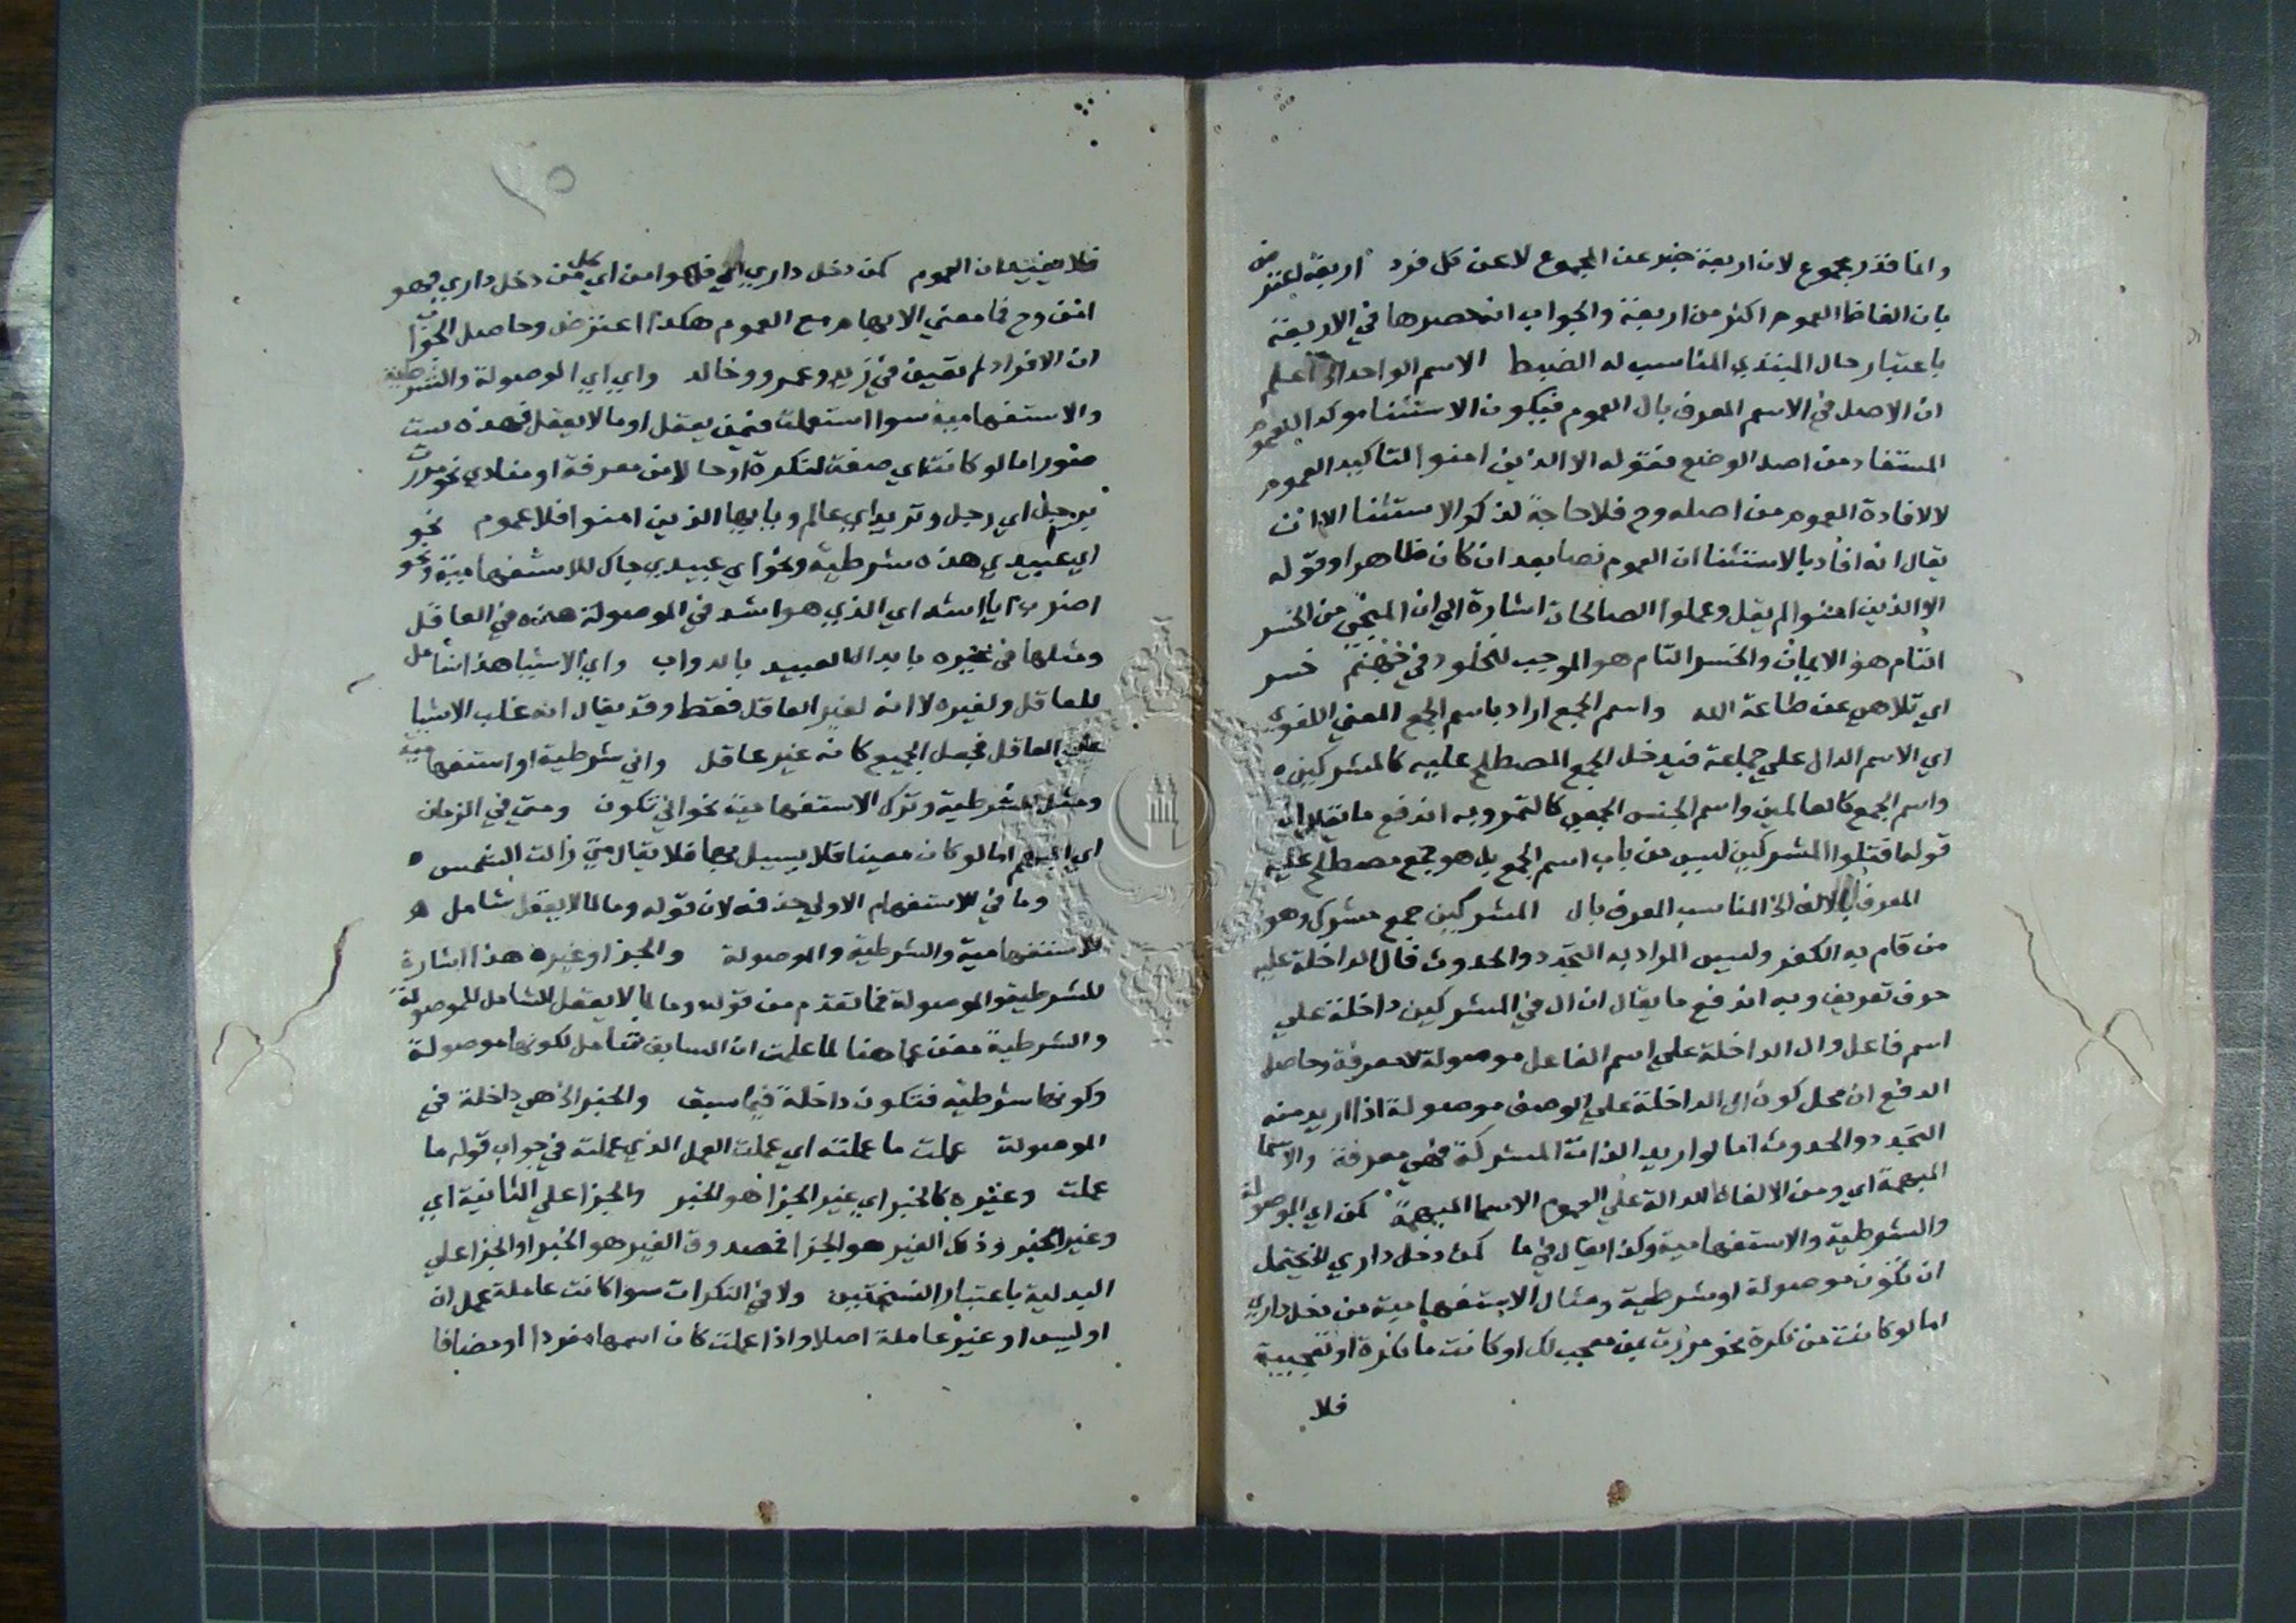 وانما قدر مجموع لان اربعة خبر عن المجموع لا عن كل فرد اربعة اعترض
بان الفاظ العموم اكثر من اربعة والجواب ان حصرها في الاربعة
باعتبار حال المبتدي المناسب له الضبط الاسم الواحد الخ اعلم
ان الاصل في الاسم المعرف بال العموم فيكون الاستثنا موكدا للعموم
المستفاد من اصل الوضع فقوله الا الذين امنوا لتاكيد العموم
لا لافادة العموم من اصله وح فلا حاجة لذكر الاستثنا الا ان
يقال انه افاد بالاستثنا ان العموم نصا بعد ان كان ظاهرا وقوله
الا الذين امنوا لم يقل وعملوا الصالحات اشارة الي ان المنجي من الخسر
التام هو الايمان والخسر التام هو الموجب للخلود في جهنم خسر
اي تلاهي عن طاعة الله واسم الجمع اراد باسم الجمع المعني اللغوي
اي الاسم الدال علي جماعة فيدخل الجمع المصطلح عليه كالمشركين
واسم الجمع كالعالمين واسم الجنس الجمعي كالتمر وبه اندفع ما يقال ان
قوله اقتلوا المشركين ليس من باب اسم الجمع بل هو جمع مصطلح عليه
المعرف بالالف الخ المناسب المعرف بال المشركين جمع مشرك وهو
من قام به الكفر وليس المراد به التجدد والحدوث فال الداخلة عليه
حرف تعريف وبه اندفع ما يقال ان ال في المشركين داخلة علي
اسم فاعل وال الداخلة علي اسم الفاعل موصولة لا معرفة وحاصل
الدفع ان محل كون ال الداخلة علي الوصف موصولة اذا اريد منه
التجدد والحدوث اما لو اريد الذات المشركة فهي معرفة والاسما
المبهمة اي ومن الالفاظ الدالة علي العموم الاسما المبهمة كمن اي الموصولة
والشرطية والاستفهامية وكذا يقال في ما كمن دخل داري الخ يحتمل
ان تكون موصولة او شرطية ومثال الاستفهامية من دخل داري
اما لو كانت من نكرة نحو مررت بمن معجب لك او كانت ما نكرة او تعجبية
فلا
١٥
فلا يفيدان العموم كمن دخل داري فهو امن اي كل من دخل داري فهو
امن وح فما معني الابهام مع العموم هكذا اعترض وحاصل الجواب
ان الافراد لم تعين في زيد وعمرو وخالد واي اي الموصولة والشرطية
والاستفهامية سوا استعملت فيمن يعقل او ما لا يعقل فهذه ست
صور اما لو كانت اي صفة لنكرة او حالا من معرفة او منادي نحو مررت
برجل اي رجل وبزيد اي عالم ويا ايها الذين امنوا فلا عموم نحو
اي عبيدي هذه شرطية ونحو اي عبيدي جاك للاستفهامية ونحو
اضرب ايا اشد اي الذي هو اشد في الموصولة هذه في العاقل
ومثلها في غيره بابدال العبيد بالدواب واي الاشيا هذا شامل
للعاقل ولغيره لا انه لغير العاقل فقط وقد يقال انه غلب الاشيا
علي العاقل فجعل الجميع كانه غير عاقل واني شرطية او استفهامية
ومثل للشرطية وترك الاستفهامية نحو اني تكون ومتي في الزمان
اي المبهم اما لو كان معينا فلا يسيل بها فلا يقال متي زالت الشمس
وما في الاستفهام الاولي حذفه لان قوله وما لما لا يعقل شامل
للاستفهامية والشرطية والموصولة والجزا وغيره هذا اشارة
للشرطية والموصولة فما تقدم من قوله وما لما لا يعقل الشامل للموصولة
والشرطية مغن عما هنا لما علمت ان السابق شامل لكونها موصولة
وكونها شرطية فتكون داخلة فيما سبق والخبر الخ هي داخلة في
الموصولة عملت ما عملته اي عملت العمل الذي عملته في جواب قوله ما
عملت وغيره كالخبر اي غير الجزا هو الخبر والجزا علي الثانية اي
وغير الخبر وذلك الغير هو الجزا فمصدوق الغير هو الخبر او الجزا علي
البدلية باعتبار النسختين ولا في النكرات سوا كانت عاملة عمل ان
او ليس او غير عاملة اصلا واذا عملت كان اسمها مفردا او مضافا